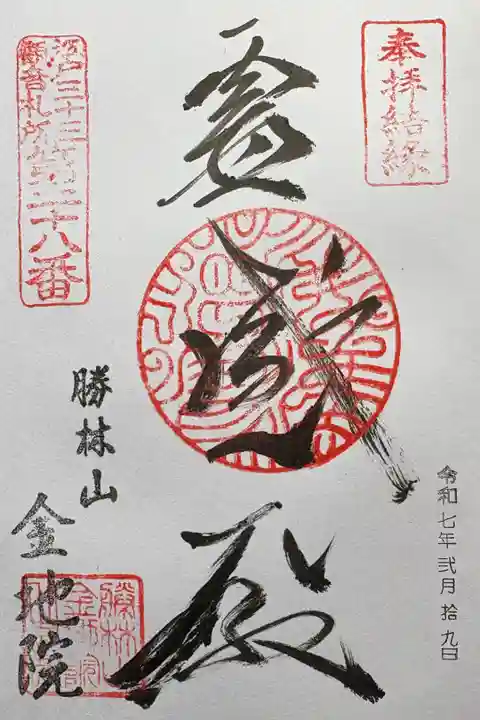 奉拝結縁
令和七年弐月拾九日
霊感殿
江戸三十三
観音札所第二十八番
勝林山
金地院